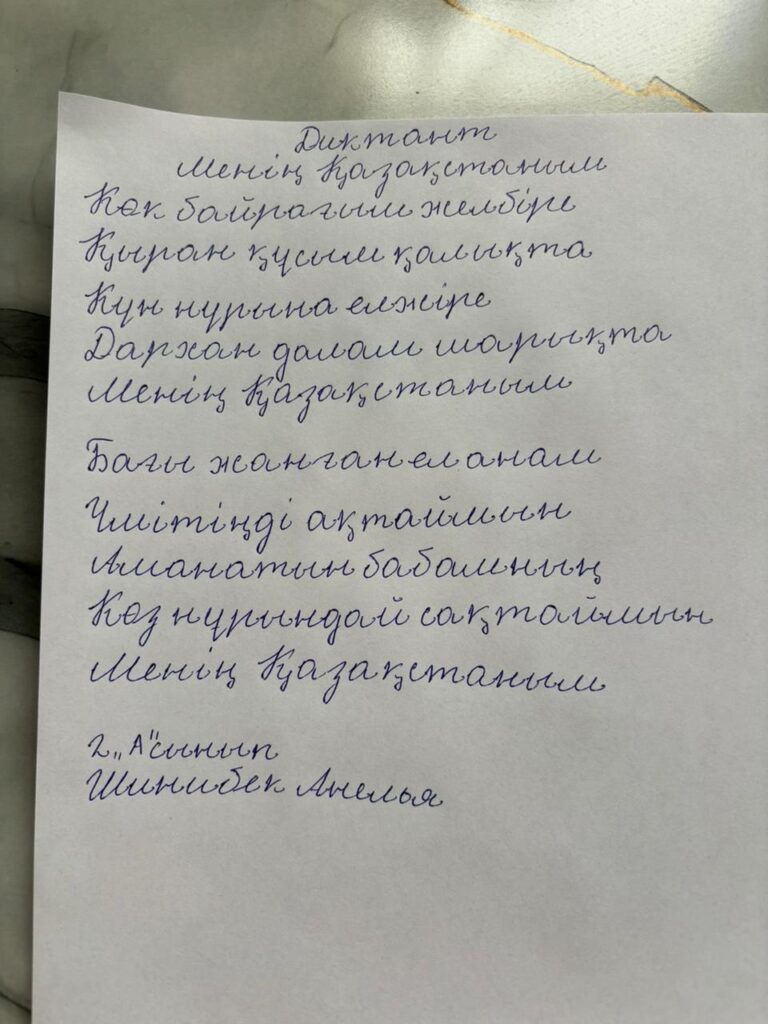 Диктант
Менің Қазақстаным
Көк байрағым желбіре
Қыран құсым қалықта
Күн нұрына елжіре
Дархан далам шарықта
Менің Қазақстаным
Бағы жанған ел анам
Үмітіңді ақтаймын
Аманатын бабамның
Көз нұрындай сақтаймын
Менің Қазақстаным
2 „А" сынып
Шинибек Анелья